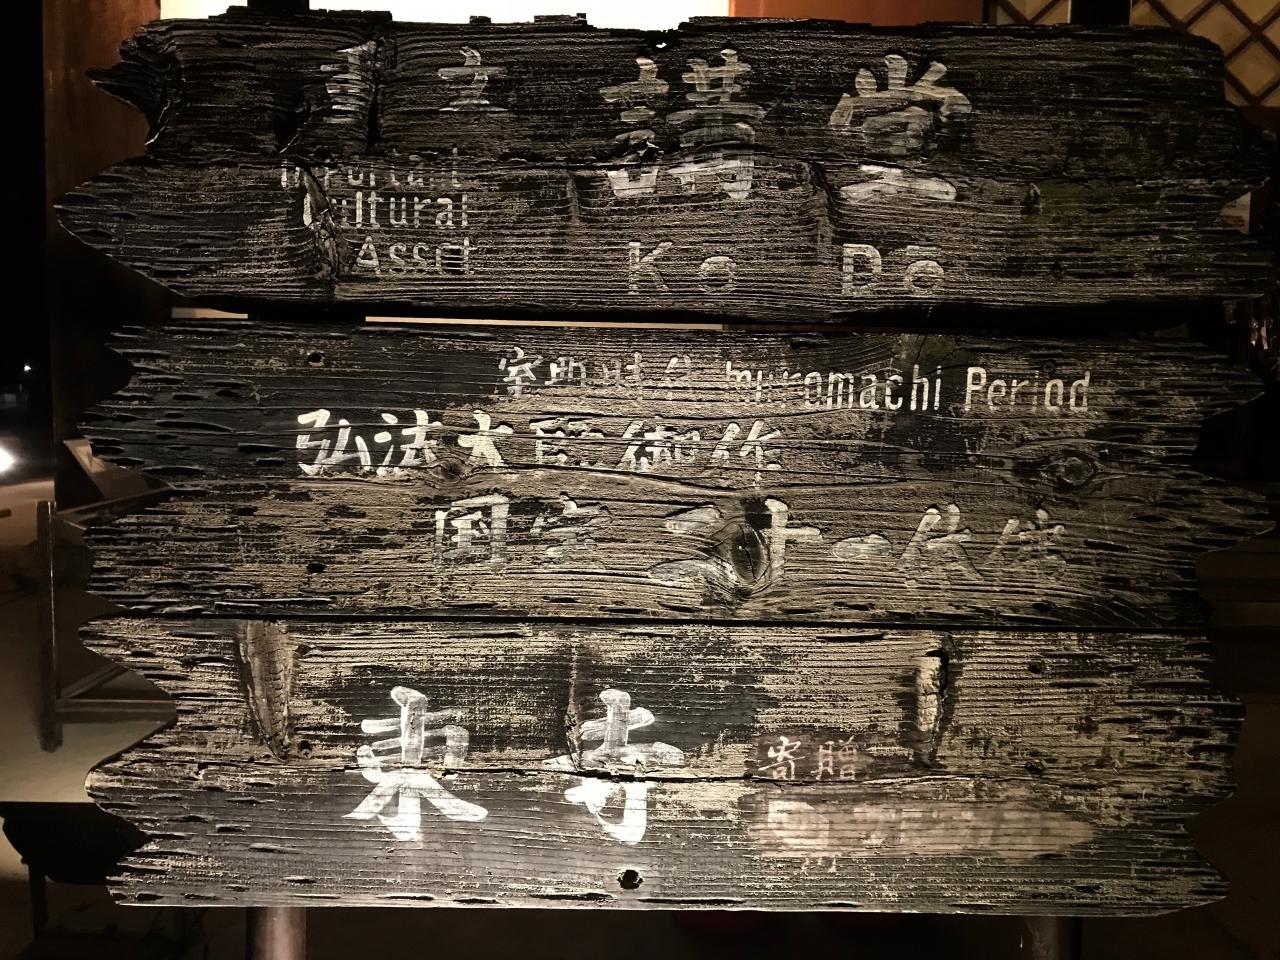 重文 講堂
Important
Cultural
Asset
Kō Dō
室町時代 Muromachi Period
弘法大師御作
国宝 二十一体仏
東寺
寄贈